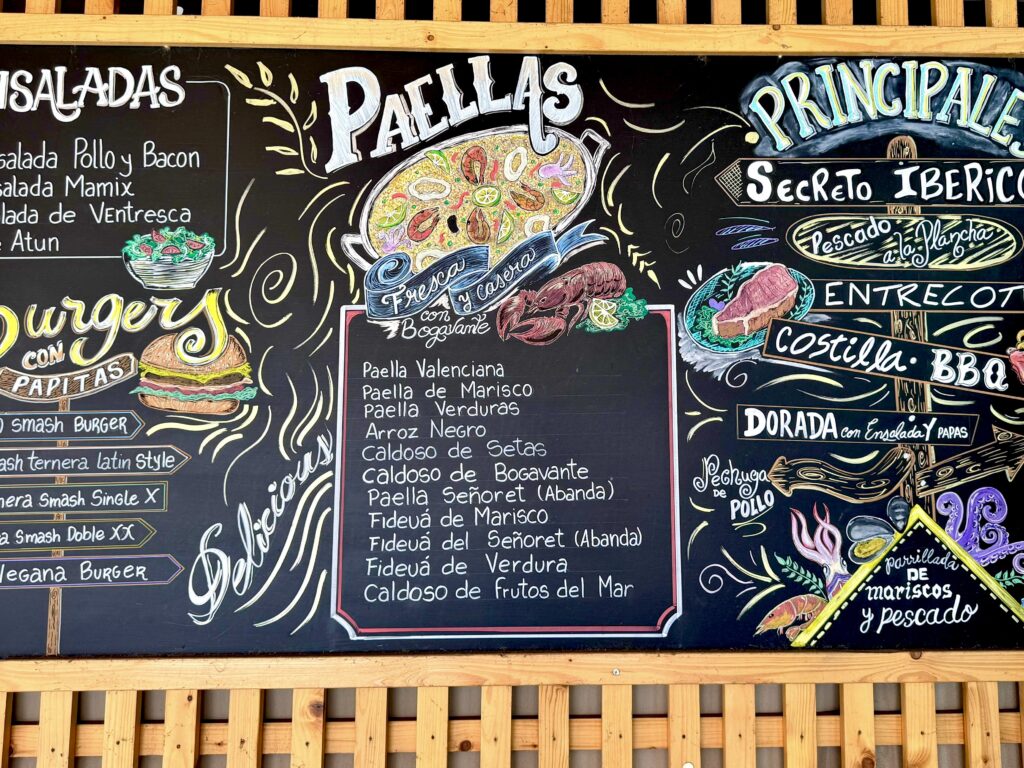 NSALADAS
salada Pollo y Bacon
salada Mamix
lada de Ventresca
e Atun
Burgers
CON
PAPITAS
SMASH BURGER
ash ternera latin Style
nera Smash Single X
a Smash Doble XX
Vegana Burger
Delicious
PAELLAS
Fresca y casera
con
Bogavante
Paella Valenciana
Paella de Marisco
Paella Verduras
Arroz Negro
Caldoso de Setas
Caldoso de Bogavante
Paella Señoret (Abanda)
Fideuá de Marisco
Fideuá del Señoret (Abanda)
Fideuá de Verdura
Caldoso de frutos del Mar
PRINCIPALES
SECRETO IBERICO
Pescado
a la Plancha
ENTRECOT
Costilla · BBQ
DORADA con Ensalada Y PAPAS
Pechuga
DE
POLLO
Parrillada
DE
mariscos
y pescado